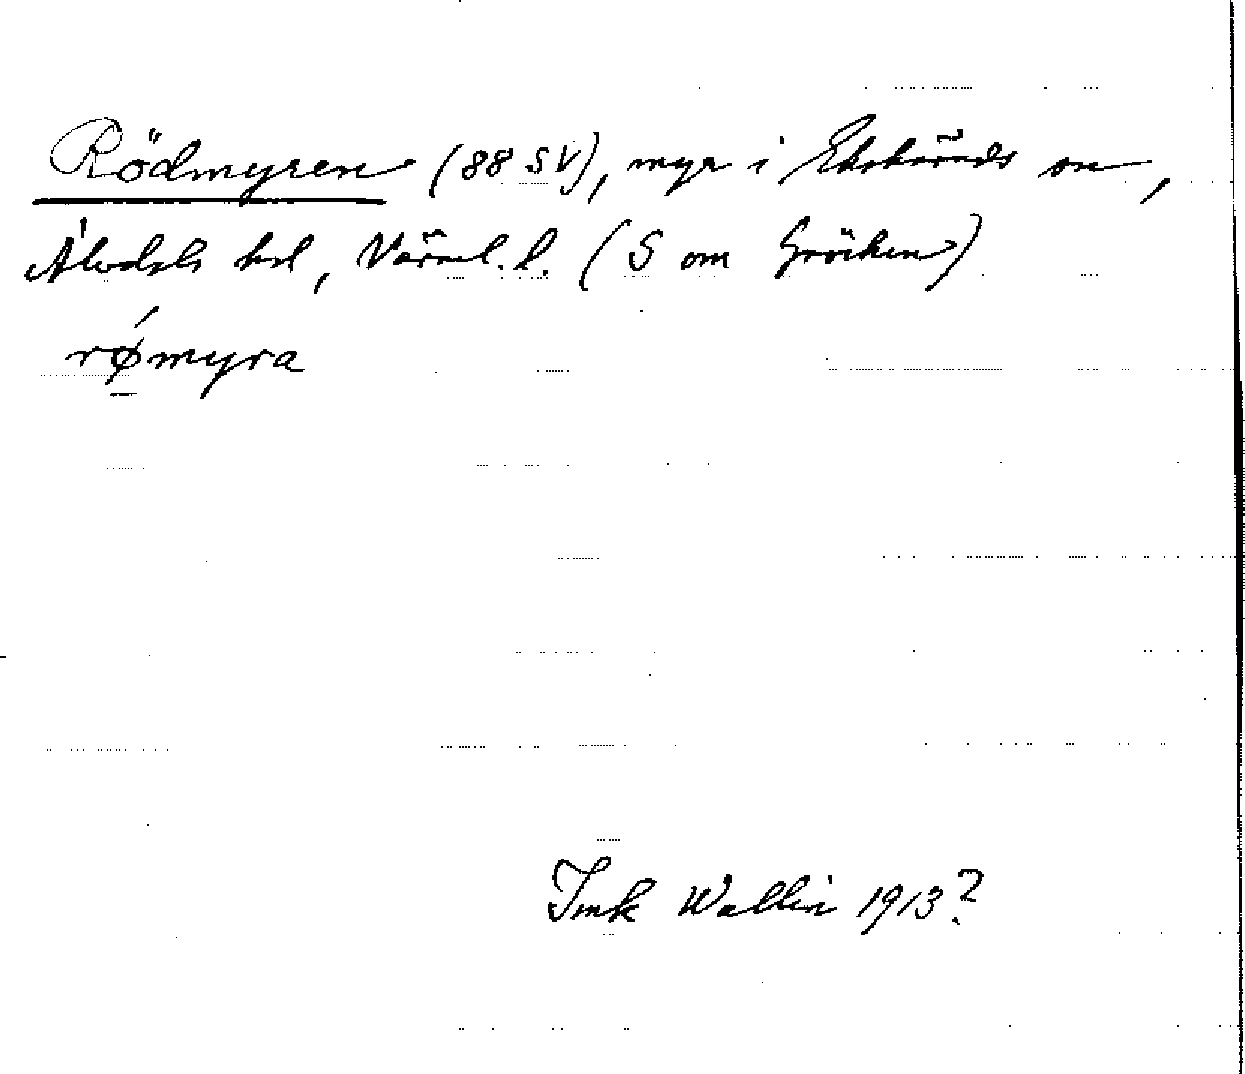 Rödmyren (88 SV), myr i Ekshärads sn,
Älvdals hd, Värml. l. (S om Gröcken)
rǿ̱myra
Imk Wallin 1913?